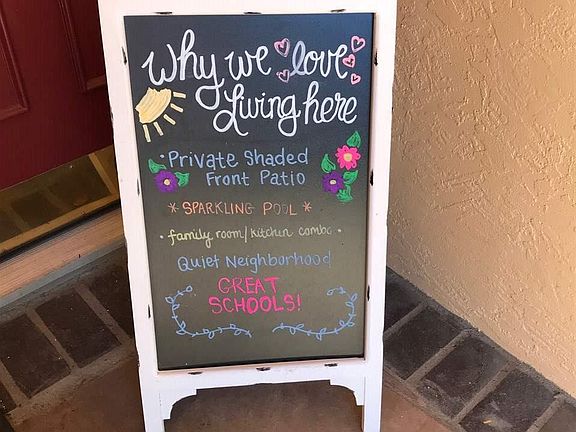 Why we love
Living here
• Private Shaded
Front Patio
* SPARKLING POOL *
• family room/kitchen combo •
Quiet Neighborhood
GREAT
SCHOOLS!